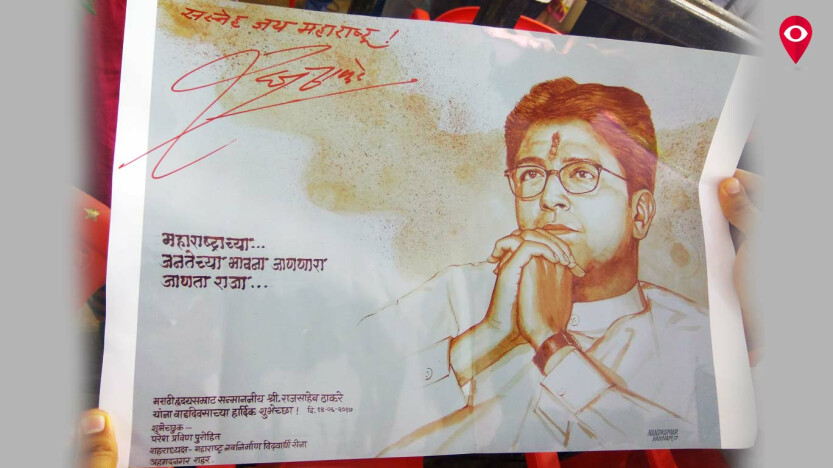 सस्नेह जय महाराष्ट्र!
महाराष्ट्राच्या...
जनतेच्या भावना जाणणारा
जाणता राजा...
मराठीहृदयसम्राट सन्माननीय श्री. राजसाहेब ठाकरे
यांना वाढदिवसाच्या हार्दिक शुभेच्छा! दि. १४-०६-२०१७
शुभेच्छुक-
परेश प्रविण पुरोहित
शहराध्यक्ष- महाराष्ट्र नवनिर्माण विद्यार्थी सेना
अहमदनगर शहर.
NANDKUMAR